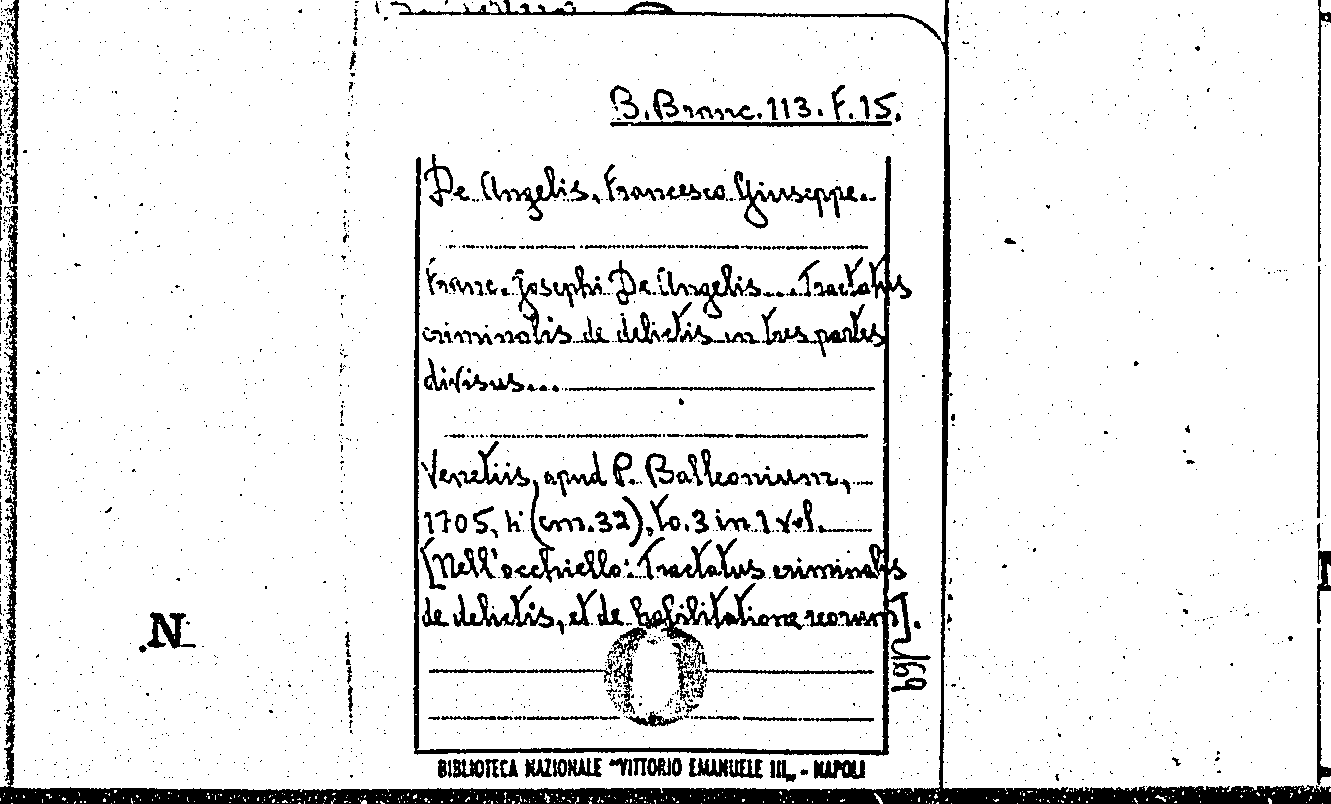 B. Branc. 113. F. 15.
De Angelis, Francesco Giuseppe.
Franc. Josephi De Angelis.... Tractatus
criminalis de delictis in tres partes
divisus...
Venetiis, apud P. Balleonium,
1705, 4° (cm. 32), to. 3 in 1 vol.
[Nell'occhiello: Tractatus criminalis
de delictis, et de habilitatione reorum].
/69
N
BIBLIOTECA NAZIONALE "VITTORIO EMANUELE III„ - NAPOLI